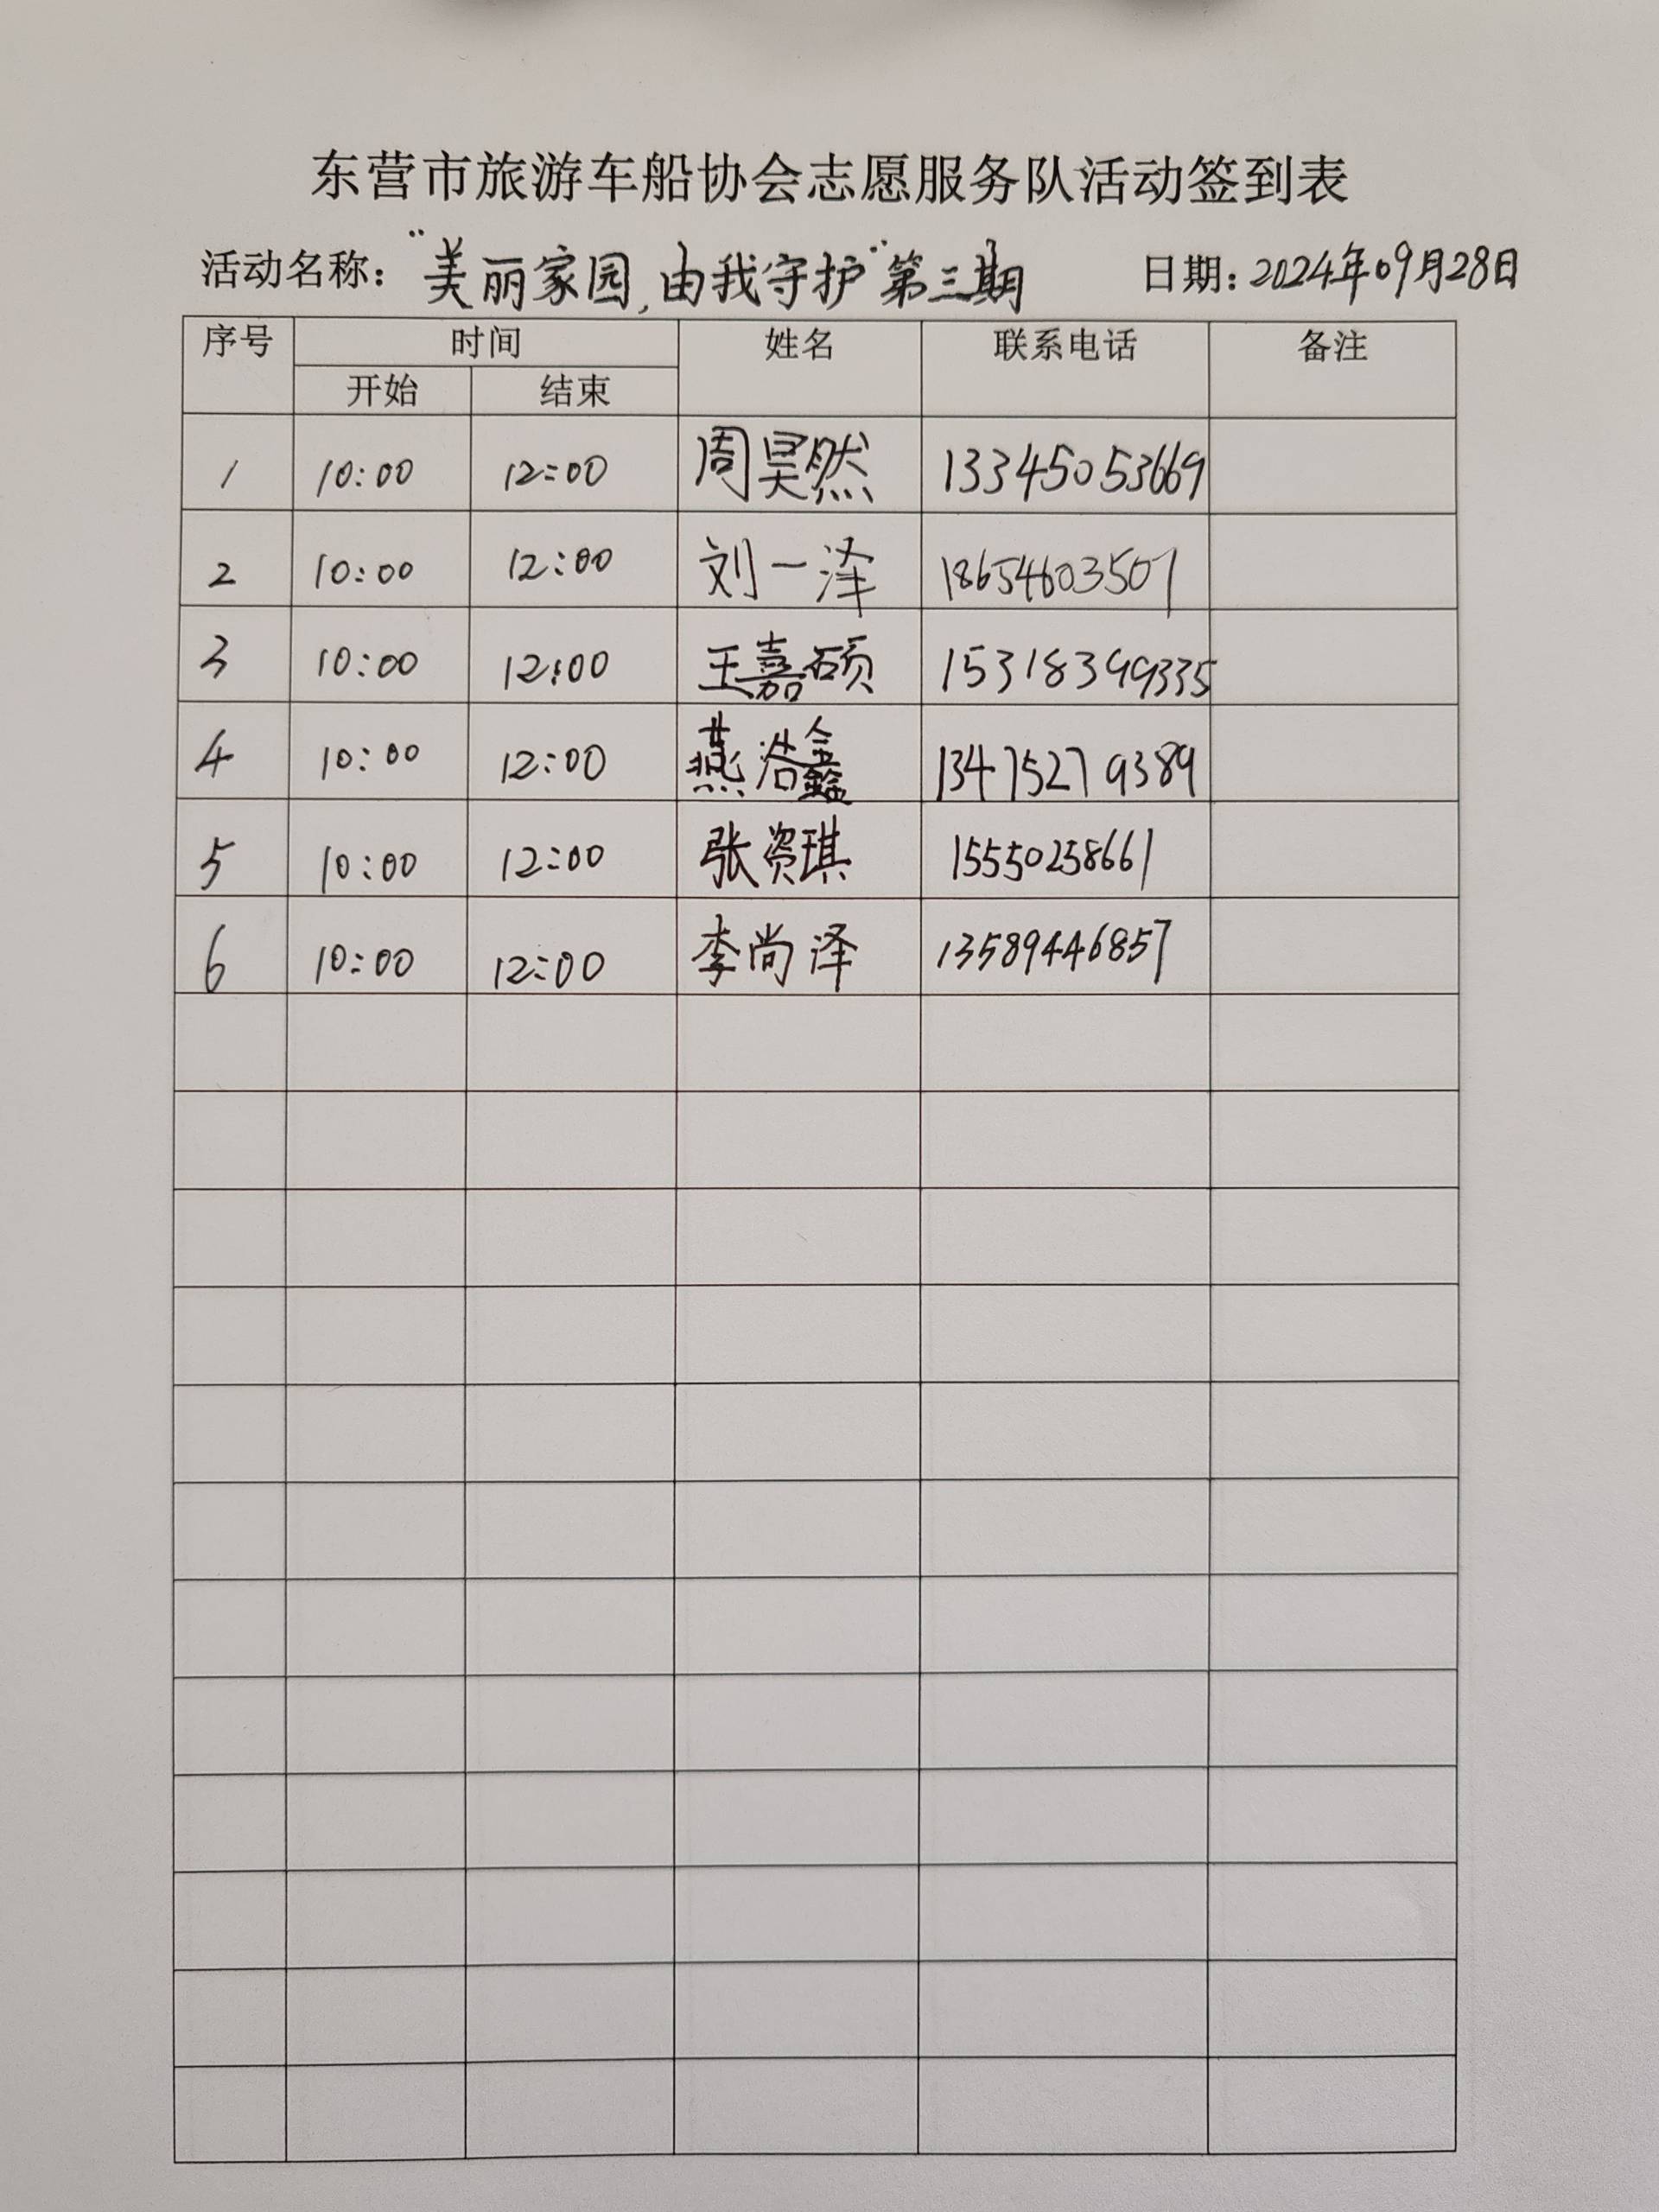 东营市旅游车船协会志愿服务队活动签到表
活动名称："美丽家园,由我守护"第三期 日期：2024年09月28日
序号 时间 姓名 联系电话 备注
开始 结束
1 10:00 12:00 周昊然 13345053669
2 10:00 12:00 刘一泽 18654603507
3 10:00 12:00 王嘉硕 15318399335
4 10:00 12:00 燕浩鑫 13475279389
5 10:00 12:00 张资琪 15550258661
6 10:00 12:00 李尚泽 13589446857